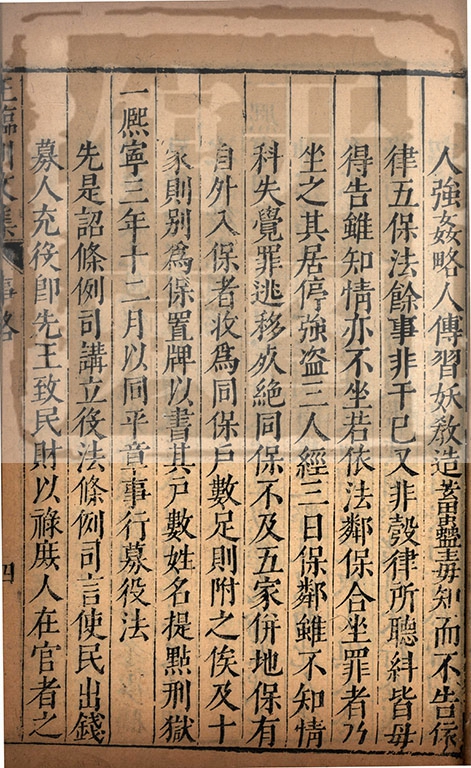 人強姦略人傳習妖教造畜蠱毒知而不告依
律五保法餘事非干已又非敇律所聽糾皆毋
得告雖知情亦不坐若依法鄰保合坐罪者乃
坐之其居停強盗三人經三日保鄰雖不知情
科失覺罪逃移死絶同保不及五家併地保有
自外入保者收爲同保户數足則附之俟及十
家則别爲保置牌以書其户數姓名提㸃刑獄
一熈寧三年十二月以同平章事行募役法
先是詔條例司講立役法條例司言使民出錢
募人充役卽先王致民財以禄庶人在官者之
王臨川文集 事略 四